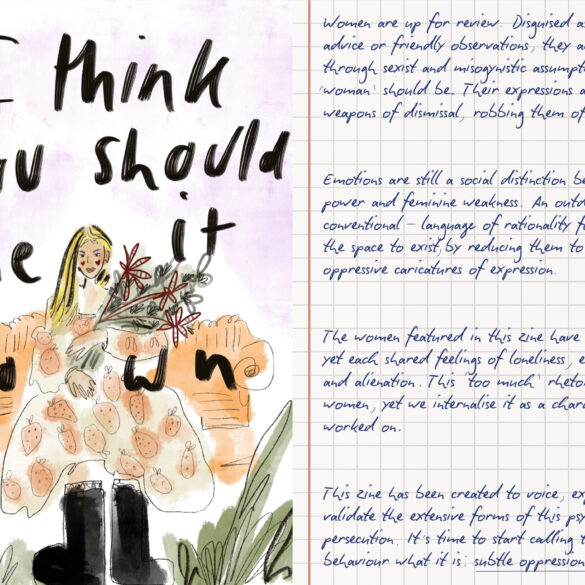 I think
you should
it
own
Women are up for review. Disguised as
advice or friendly observations, they a
through sexist and misogynistic assumpti
'woman' should be. Their expressions a
weapons of dismissal, robbing them of
Emotions are still a social distinction be
power and feminine weakness. An outd
conventional – language of rationality f
the space to exist, by reducing them to
oppressive caricatures of expression.
The women featured in this zine have
yet each shared feelings of loneliness, e
and alienation. This 'too much' rheto
women, yet we internalise it as a chara
worked on.
This zine has been created to voice, exp
validate the extensive forms of this psy
persecution. It's time to start calling t
behaviour what it is: subtle oppression